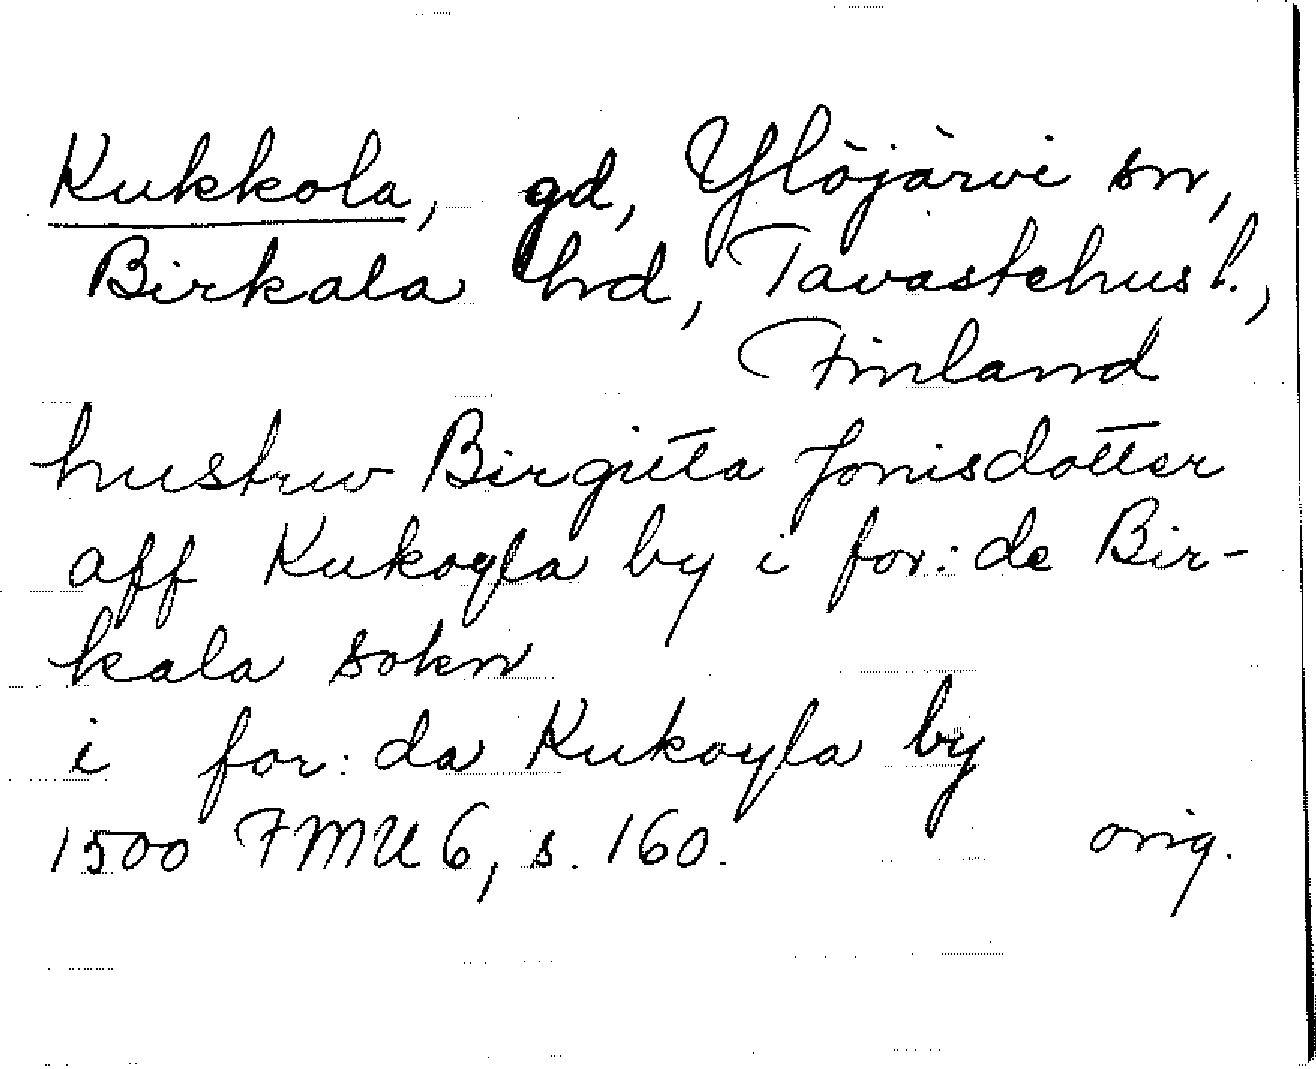 Kukkola, gd, Ylöjärvi sn,
Birkala hd, Tavastehus l.,
Finland
hustrw Birgitta Jonisdotter
aff Kukoyla by i for: de Bir-
kala sokn
i for: da Kukoyla by
1500 FMU 6, s. 160. orig.